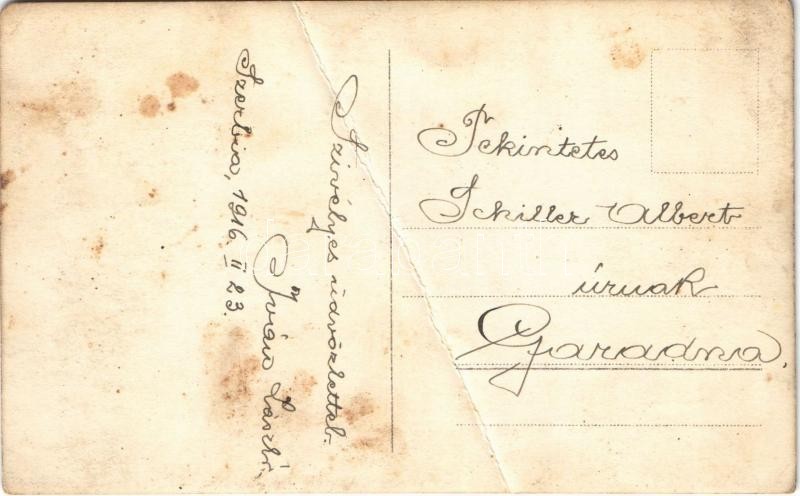 Szerbia, 1916. II 23.
Szivélyes üdvözlettel.
Iván László
Tekintetes
Schiller Albert
úrnak
Garadna.